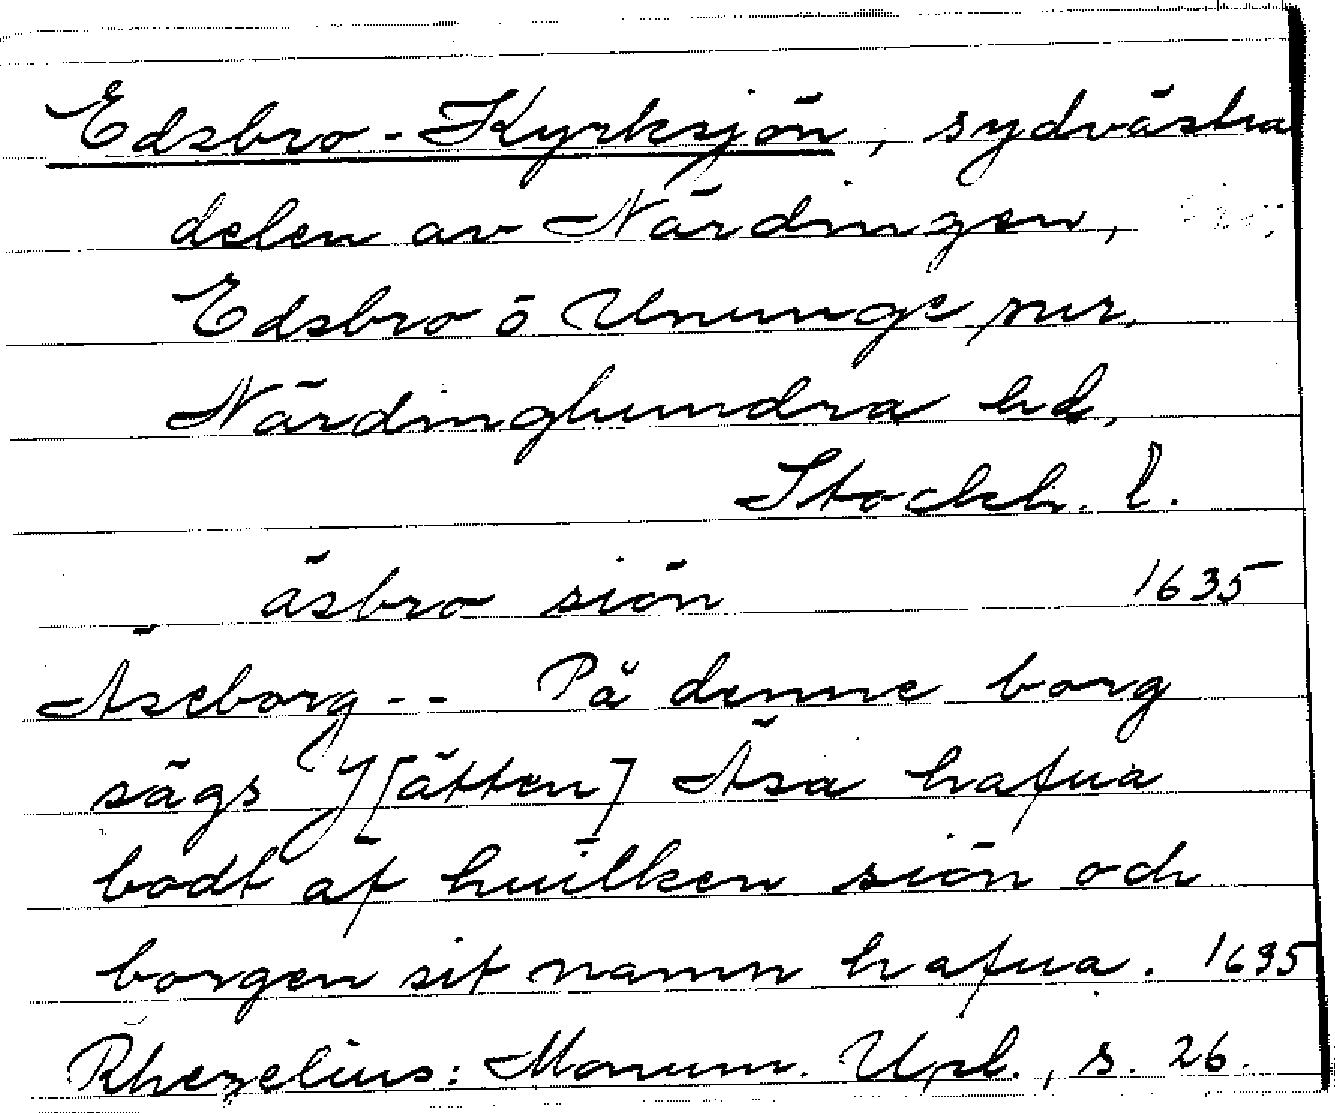 Edsbro-Kyrksjön, sydvästra
delen av Närdingen,
Edsbro o Ununge snr,
Närdinghundra hd,
Stockh. l.
äsbro siön 1635
Äseborg -- På denne borg
sägs J[ätten] Äsa hafua
bodt af huilken siön och
borgen sit namn hafua. 1635
Rhezelius: Monum. Upl., s. 26.